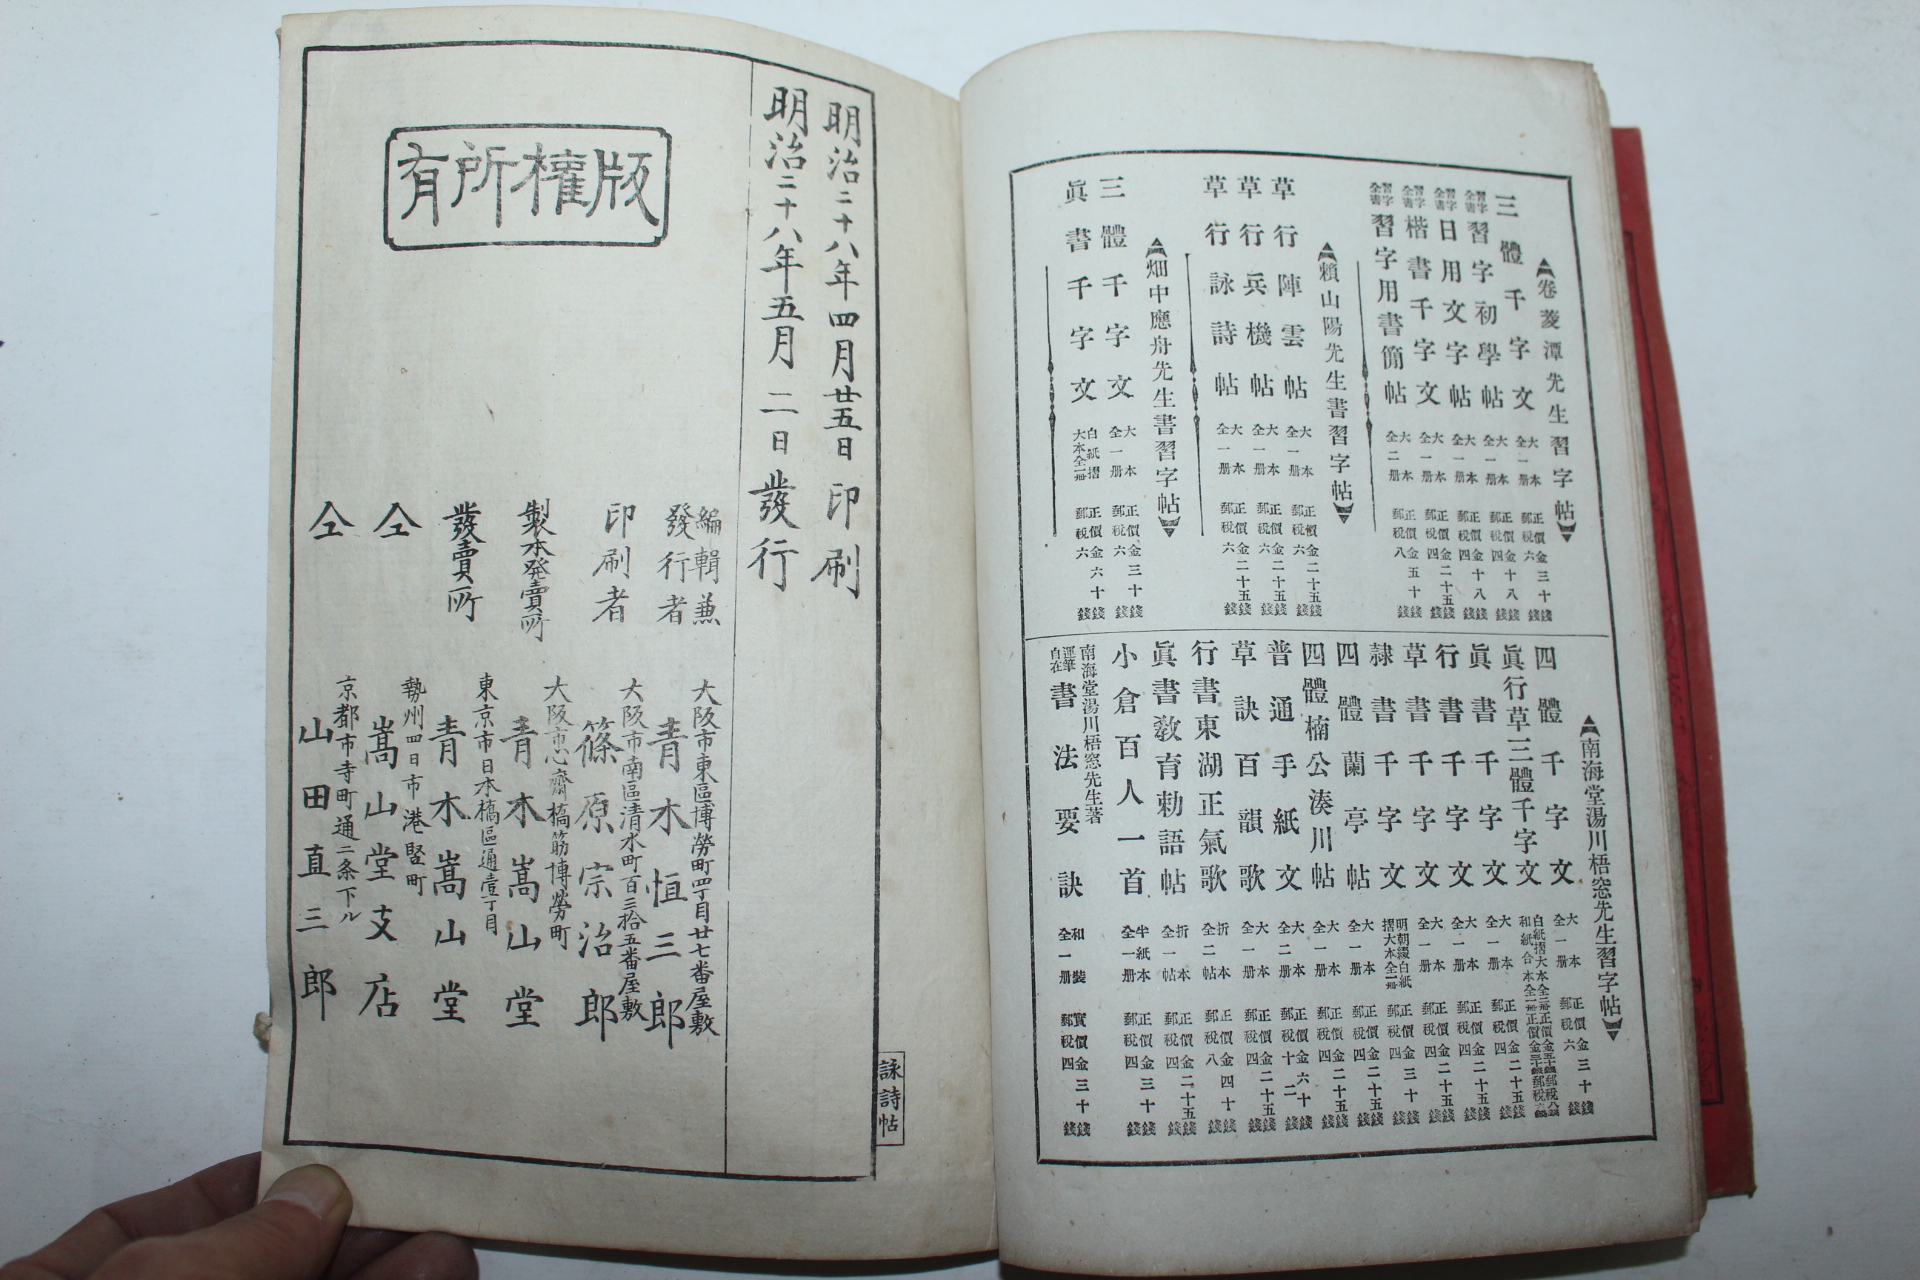 ▲卷菱潭先生習字帖▼
三體千字文 大本全一册 正價金三十錢郵税六錢
習字全書 習字初學帖 大本全一册 正價金十八錢郵税四錢
習字全書 日用文字帖 大本全一册 正價金十八錢郵税四錢
習字全書 楷書千字文 大本全一册 正價金二十五錢郵税四錢
習字全書 習字用書簡帖 大本全二册 正價金五十錢郵税八錢
▲賴山陽先生書習字帖▼
草行陣雲帖 大本全一册 正價金二十五錢郵税六錢
草行兵機帖 大本全一册 正價金二十五錢郵税六錢
草行詠詩帖 大本全一册 正價金二十五錢郵税六錢
▲畑中應舟先生書習字帖▼
三體千字文 大本全一册 正價金三十錢郵税六錢
眞書千字文 白紙摺大本全一册 正價金六十錢郵税六錢
▲南海堂湯川梧窓先生習字帖▼
四體千字文 大本全一册 正價金三十錢郵税六錢
眞行草三體千字文 白紙摺大本全二册正價金五十錢郵税八錢 和紙合本全一册正價金三十錢郵税六錢
眞書千字文 大本全一册 正價金二十五錢郵税四錢
行書千字文 大本全一册 正價金二十五錢郵税四錢
草書千字文 大本全一册 正價金二十五錢郵税四錢
隷書千字文 明朝綴白紙摺大本全一册 正價金三十錢郵税四錢
四體蘭亭帖 大本全一册 正價金二十五錢郵税四錢
四體楠公湊川帖 大本全一册 正價金二十五錢郵税四錢
普通手紙文 大本全二册 正價金六十錢郵税十二錢
草訣百韻歌 大本全一册 正價金二十五錢郵税四錢
行書東湖正氣歌 折本全二帖 正價金四十錢郵税八錢
眞書教育勅語帖 折本全一帖 正價金二十五錢郵税四錢
小倉百人一首 半紙本全一册 正價金三十錢郵税四錢
南海堂湯川梧窓先生著
運筆自在 書法要訣 和裝全一册 實價金三十錢郵税四錢
明治二十八年四月廿五日印刷
明治二十八年五月二日發行
版權所有
編輯兼發行者 大阪市東區博勞町四丁目廿七番屋敷 青木恒三郎
印刷者 大阪市南區清水町百三拾五番屋敷 篠原宗治郎
製本発賣所 大阪市心齋橋筋博勞町 青木嵩山堂
發賣所 東京市日本橋區通壹丁目 青木嵩山堂
仝 勢州四日市港竪町 嵩山堂支店
仝 京都市寺町通二条下ル 山田直三郎
詠詩帖